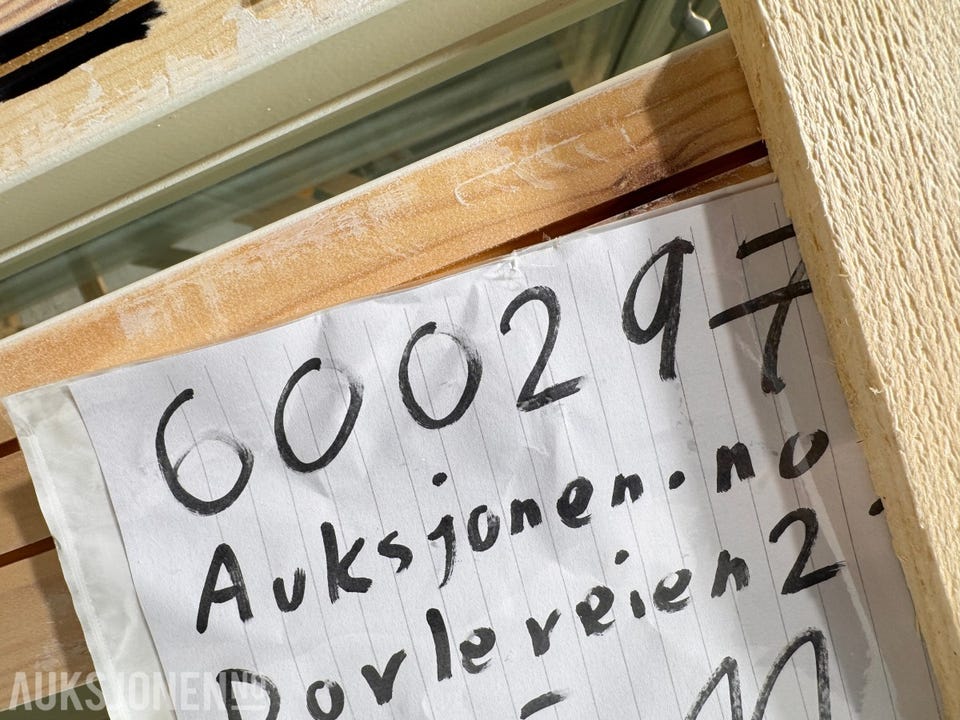 600297
Auksjonen.no
Dorlereien 2
AUKSJONEN.NO